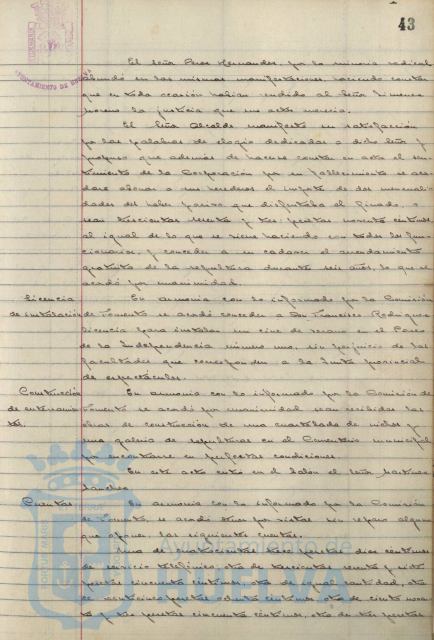 43
AYUNTAMIENTO DE HUELVA
El Señor Peres Hernandez, por la minoria radical
abundó en las mismas manifestaciones, haciendo constar
que en toda ocasión habian rendido al Señor Jimenez
Moreno la justicia que sus actos merecia.
El Señor Alcalde manifestó su satisfacción
por las palabras de elogio dedicadas a dicho Señor y
propuso que además de hacerse constar en acta el sen-
timiento de la Corporación por su fallecimiento se acor-
dase abonar a sus herederos el importe de dos mensuali-
dades del haber pasivo que disfrutaba el finado, o
sean trescientas setenta y tres pesetas noventa céntimos
al igual de lo que se viene haciendo con todos los fun-
cionarios, y conceder a su cadáver el arrendamiento
gratuito de la sepultura durante seis años, lo que se
acordó por unanimidad.
Licencia
de instalación
En armonia con lo informado por la Comisión
de Fomento se acordó conceder a Don Francisco Rodriguez
licencia para instalar un cine de verano en el Paseo
de la Independencia número uno, sin perjuicio de las
facultades que corresponden a la Junta provincial
de espectáculos.
Construcción
de enterramien-
tos.
En armonia con lo informado por la Comisión de
Fomento se acordó por unanimidad sean recibidas las
obras de construcción de una cuartelada de nichos y
una galeria de sepulturas en el Cementerio municipal
por encontrarse en perfectas condiciones.
En este acto entró en el Salón el Señor Martinez
Sánchez.
Cuentas
En armonia con lo informado por la Comisión
de Fomento, se acordó por sin reparo alguno
que oponer las siguientes cuentas.
Una de cuatrocientas trece pesetas diez céntimos
de servicio telefónico, otra de trescientas veinte y siete
pesetas cincuenta céntimos, otra de igual cantidad, otra
de veinticinco pesetas ochenta céntimos, otra de ciento noven-
ta y tres pesetas cincuenta céntimos, otra de tres pesetas
Ayuntamiento de
HUELVA
PORTUS MARIS